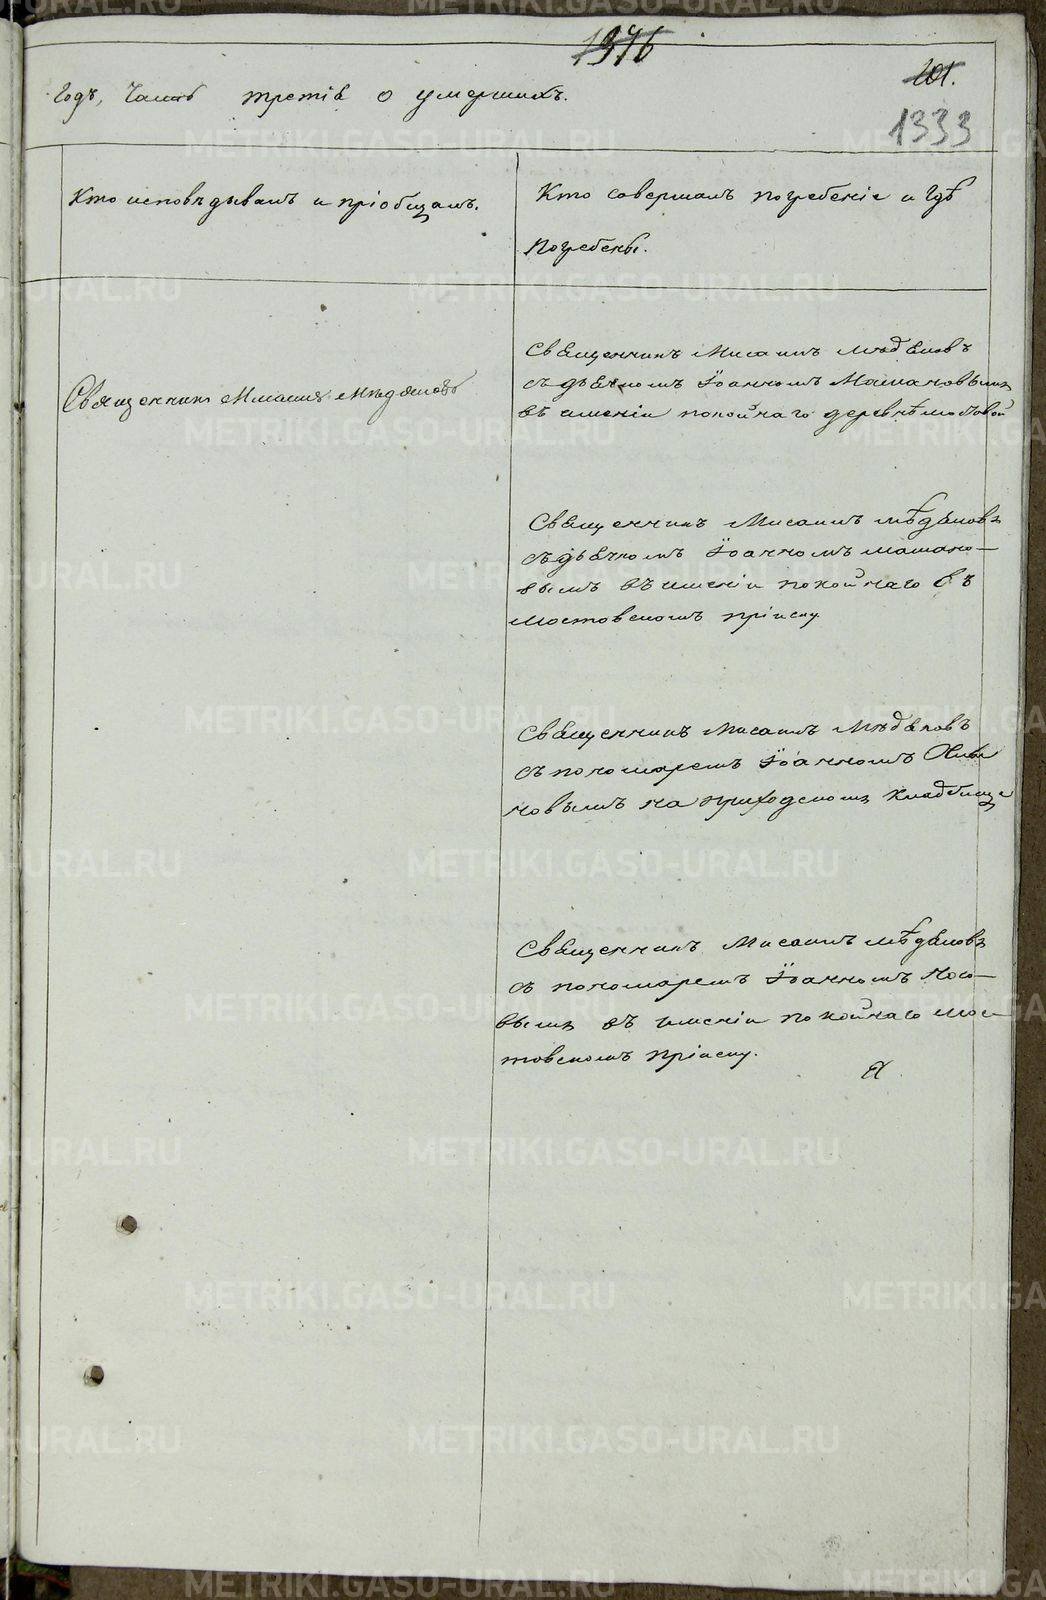 1376
201.
1333
Годъ, Часть третія о умершихъ.
Кто исповѣдывалъ и пріобщалъ.
Кто совершалъ погребеніе и гдѣ
погребены.
Священникъ Мисаилъ Мѣдяковъ
Священникъ Мисаилъ Мѣдяковъ
съ дьячкомъ Іоанномъ Машановымъ
въ имѣніи покойнаго деревнѣ
Священникъ Мисаилъ Мѣдяковъ
съ дьячкомъ Іоанномъ Машано-
вымъ въ имѣніи покойнаго въ
Мостовскомъ пріиску
Священникъ Мисаилъ Мѣдяковъ
съ пономаремъ Іоанномъ
новымъ на приходскомъ кладбище
Священникъ Мисаилъ Мѣдяковъ
съ пономаремъ Іоанномъ
вымъ въ имѣніи покойнаго Мос-
товскомъ пріиску.
METRIKI.GASO-URAL.RU